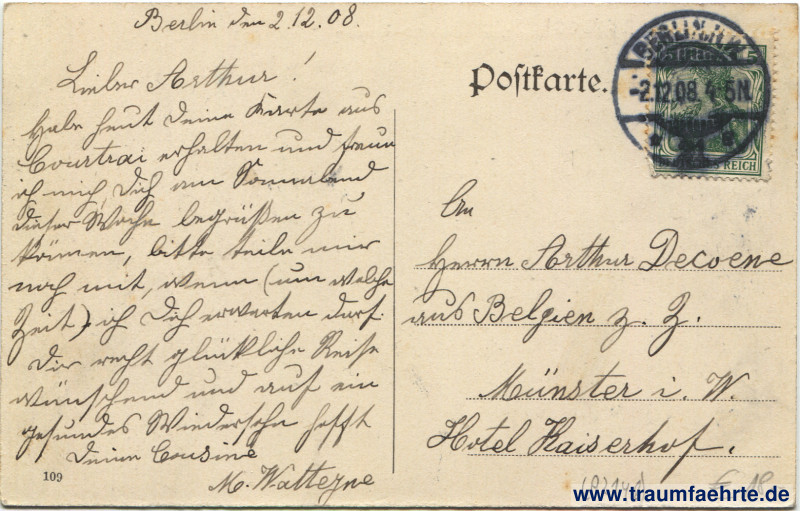 Berlin den 2.12.08.
Lieber Arthur!
Habe heut deine Karte aus
Courtrai erhalten und freue
ich mich, Dich am Sonnabend
dieser Woche begrüßen zu
können, bitte teile mir
noch mit, wenn (um welche
Zeit) ich Dich erwarten darf.
Dir recht glückliche Reise
wünschend und auf ein
gesundes Wiedersehn hofft
Deine Cousine
M. Watteyne
109
Postkarte.
BERLIN
-2.12.08. 4-5N.
5
REICH
An
Herrn Arthur Decoene
aus Belgien z. Z.
Münster i. W.
Hotel Kaiserhof.
www.traumfaehrte.de